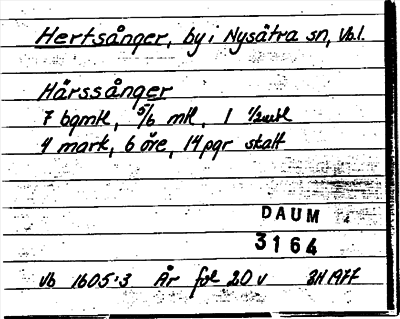 Hertsånger, by i Nysätra sn, Vb.l.
Härssånger
7 bgmtl, 5/6 mtl, 1 1/2mtl
4 mark, 6 öre, 14pgr skatt
DAUM
3164
Vb 1605:3 År fol 20 v SH 1977